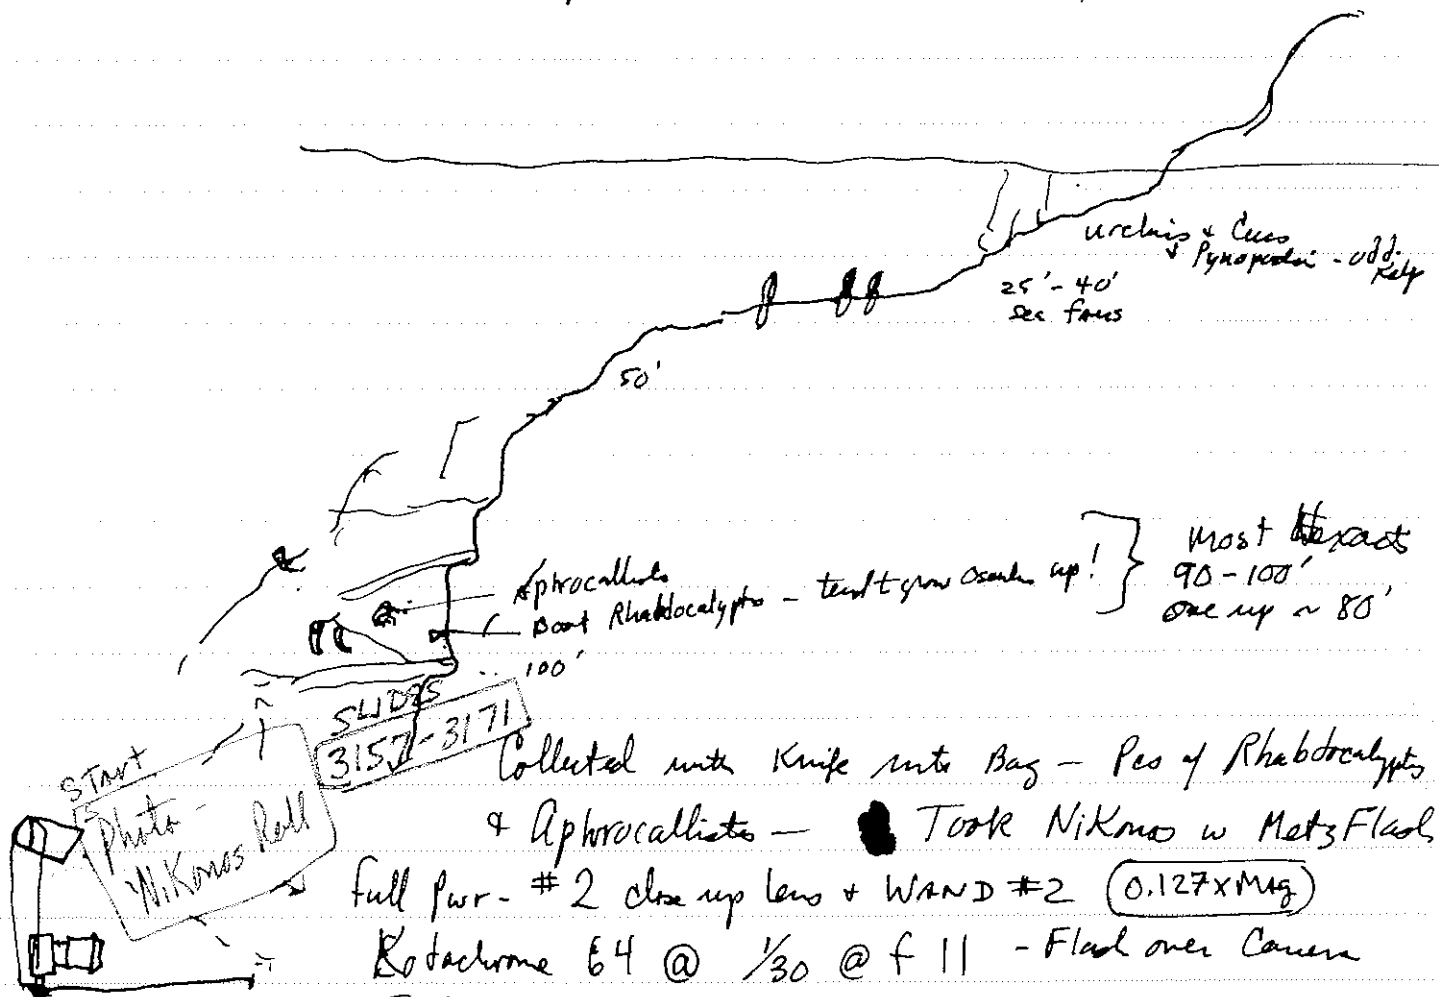 urchins & Cucs
Pycnopodia - odd
Kelp
25' - 40'
sea fans
50'
Aphrocallistes
Boot Rhabdocalyptus - tend t grow up!
most Hexacts
90 - 100'
one up ~ 80'
100'
SLIDES
3157-3171
START
Photo -
Nikonos Roll
Collected with Knife into Bag - Pcs of Rhabdocalyptus
& Aphrocallistes - Took NiKonos w Metz Flash
full Pwr - #2 close up lens + WAND #2 (0.127xMag)
Kodachrome 64 @ 1/30 @ f 11 - Flash over Camera